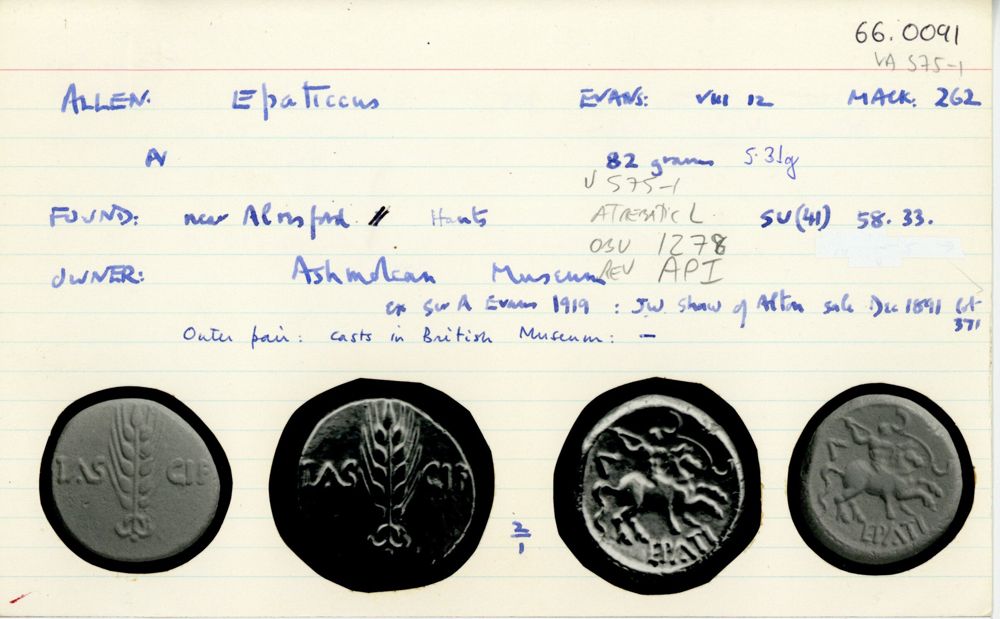 66.0091
VA 575-1
ALLEN: Epaticcus EVANS: VIII 12 MACK: 262
AV 82 grams 5.31g
V 575-1
FOUND: near Alresford Hants ATREBATIC L SU(41) 58.33.
OBV 1278
OWNER: Ashmolean Museum REV API
ex Sir A Evans 1919 : J.W. Shaw of Alton sale Dec 1891 lot
371
Outer pair: casts in British Museum: —
TAS CIF
TAS CIF
2/1
EPATI
EPATI